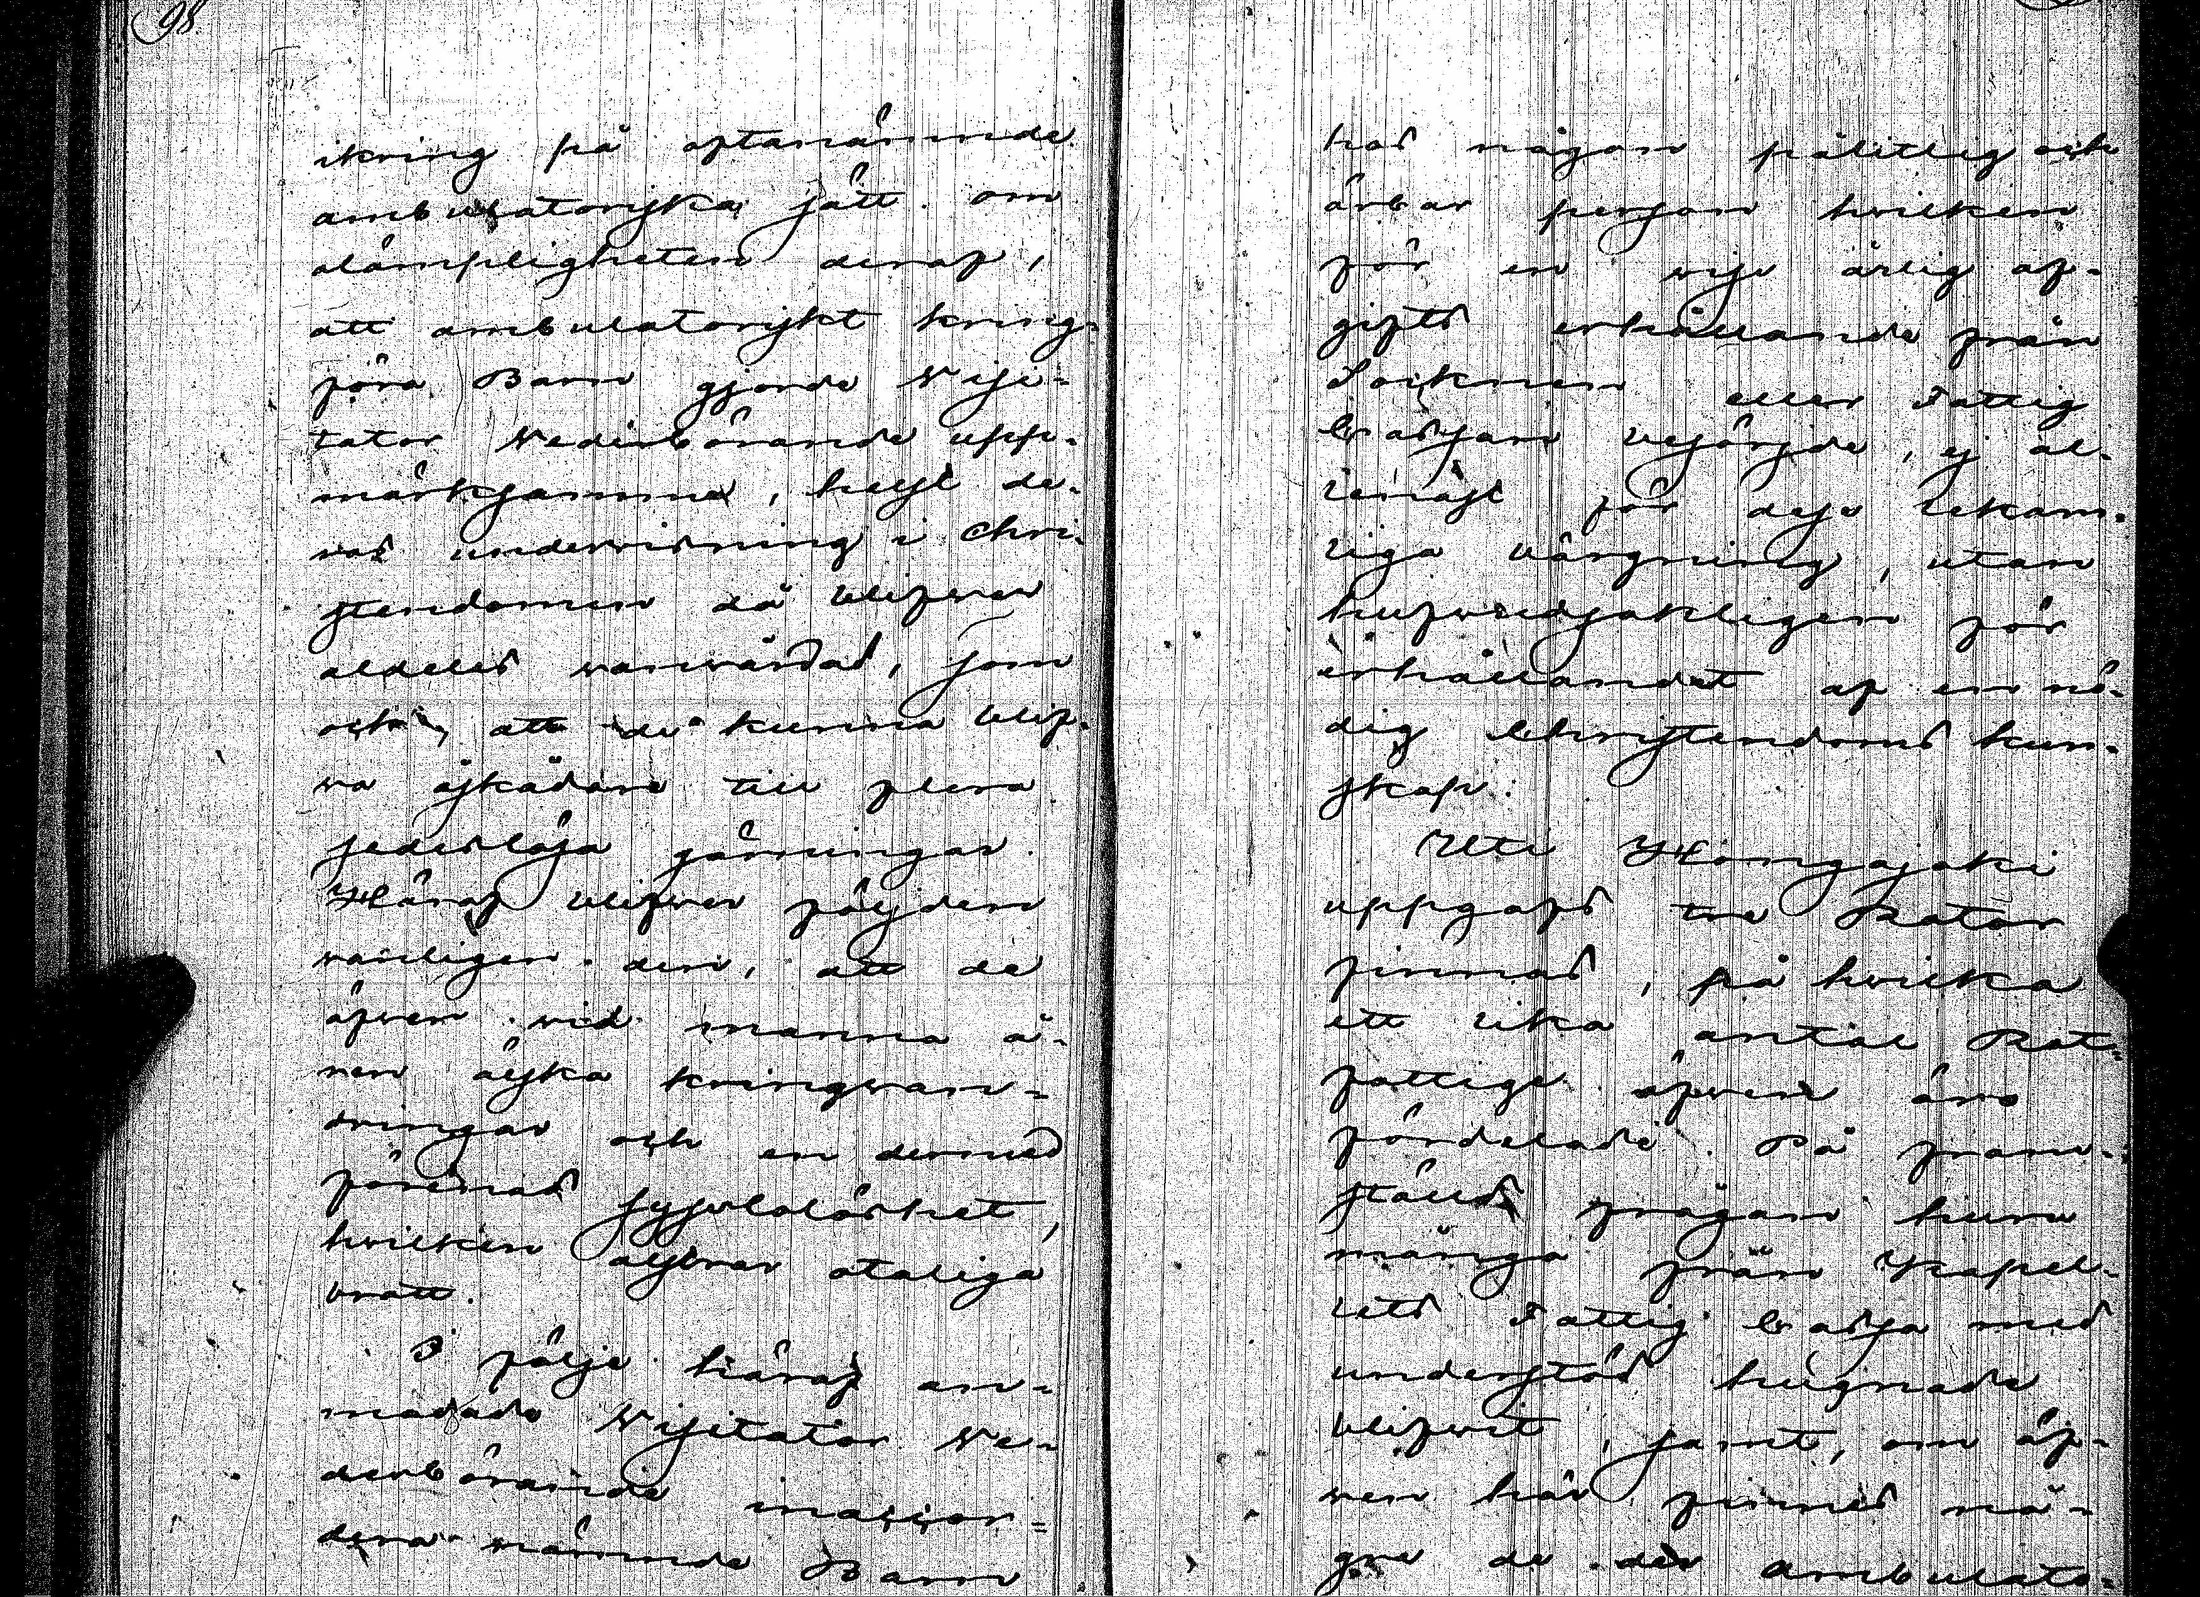 98.
ikring på oftanämnde
ambulatoriska sätt. om
olämpligheten deraf,
att ambulatoriskt kring-
föra Barn gjorde Visi-
tator Vederbörande upp-
märksamma, helst de-
ras undervisning i Chri-
stendomen då blifver
aldeles vanvårdad, som
ock, att de kunna blif-
va åskådare till flera
sedeslösa gärningar.
Häraf blifver följden
vanligen den, att de
äfven vid manna å-
ren älska kringvan-
dringar och en dermed
förenad sysslolöshet,
hvilken alstrar otaliga
brott.
I följe häraf an-
modade Visitator Ve-
derbörande inaccor-
dera nämnde Barn
hos någon pålitlig och
ärbar person hvilken
för en viss årlig af-
gifts erhållande från
Socknen eller Fattig
Cassan besörjde, ej al-
lenast för dess lekam-
liga bärgning, utan
hufvudsakligen för
erhållandet af en nö-
dig Christendoms kun-
skap.
Uti Kôngajoki
uppgafs tre Rotar
finnas, på hvilka
ett lika antal Rot-
fattige äfven äro
fördelade. På fram-
ställd frågan huru
många från Kapel-
lets Fattig Cassa med
understöd hugnade
blifvit, samt, om äf-
ven här finnes nå-
gre de der ambulato-